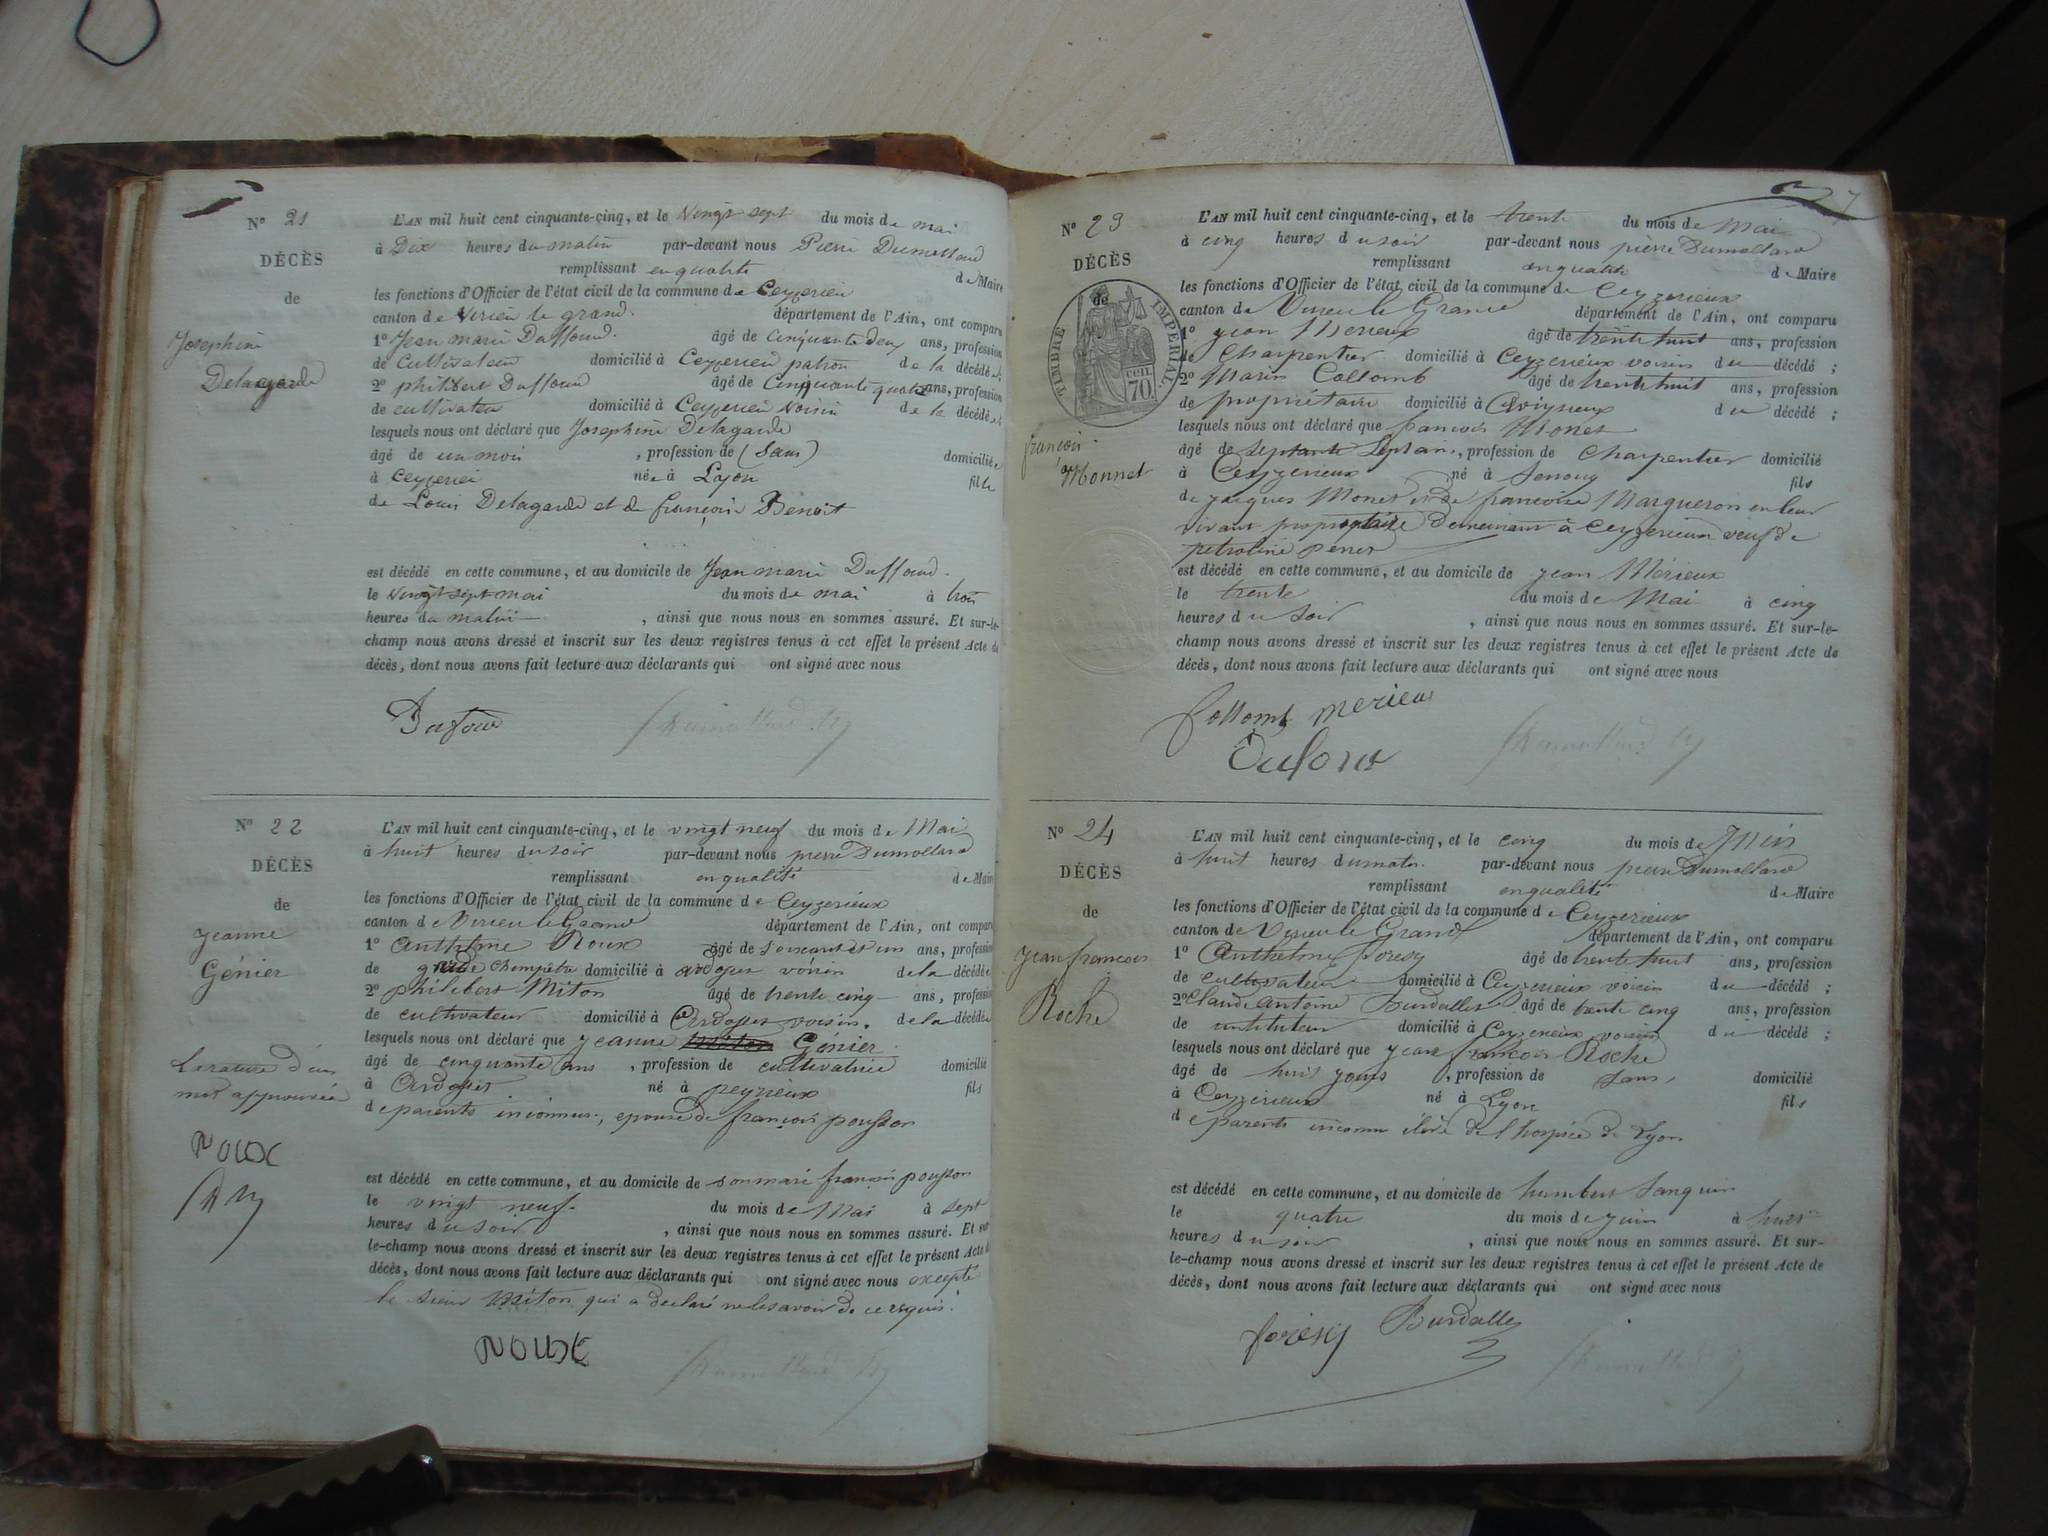 N° 21
DÉCÈS
de
Josephine
Delagarde
L'AN mil huit cent cinquante-cinq, et le vingt sept du mois de mai
à Dix heures du matin par-devant nous Pierre Dumollard
remplissant en qualité de Maire
les fonctions d'Officier de l'état civil de la commune de Ceyzerieu
canton de Virieu le grand. département de l'Ain, ont comparu
1° Jean marie Duffour. âgé de Cinquante deux ans, profession
de Cultivateur domicilié à Ceyzerieu patron de la décédée;
2° philibert Duffour âgé de Cinquante quatre ans, profession
de cultivateur domicilié à Ceyzerieu voisin de la décédée
lesquels nous ont déclaré que Josephine Delagarde
âgé de un mois , profession de (Sans) domiciliée
à Ceyzerieu née à Lyon fille
de Louis Delagarde et de françoise Benoit
est décédé en cette commune, et au domicile de Jean marie Duffour.
le vingt sept mai du mois de mai à trois
heures du matin , ainsi que nous nous en sommes assuré. Et sur-le-
champ nous avons dressé et inscrit sur les deux registres tenus à cet effet le présent Acte de
décès, dont nous avons fait lecture aux déclarants qui ont signé avec nous
Dufour
N° 22
DÉCÈS
de
jeanne
Génier
La rature d'un
mot approuvée
ROUX
L'AN mil huit cent cinquante-cinq, et le vingt neuf du mois de Mai
à huit heures du soir par-devant nous pierre Dumollard
remplissant en qualité de Maire
les fonctions d'Officier de l'état civil de la commune de Ceyzerieux
canton de Virieu le Grand département de l'Ain, ont comparu
1° Anthelme Roux âgé de soixante et un ans, profession
de garde champetre domicilié à ardosset voisin de la décédée
2° philibert Miton âgé de trente cinq ans, profession
de cultivateur domicilié à Ardosset voisin. de la décédée
lesquels nous ont déclaré que jeanne Génier
âgé de cinquante ans , profession de cultivatrice domicilié
à Ardosset né à peyrieux fils
de parents inconnus, epouse de françois pousson
est décédé en cette commune, et au domicile de son mari françois pousson
le vingt neuf. du mois de Mai à sept
heures du soir , ainsi que nous nous en sommes assuré. Et sur-
le-champ nous avons dressé et inscrit sur les deux registres tenus à cet effet le présent Acte de
décès, dont nous avons fait lecture aux déclarants qui ont signé avec nous excepté
le sieur Miton qui a declaré ne le savoir de ce requis.
ROUX
7
N° 23
DÉCÈS
de
TIMBRE IMPÉRIAL
70
françois
Monnet
L'AN mil huit cent cinquante-cinq, et le trente du mois de Mai
à cinq heures du soir par-devant nous pierre Dumollard
remplissant en qualité de Maire
les fonctions d'Officier de l'état civil de la commune de Ceyzerieux
canton de Virieu le Grand département de l'Ain, ont comparu
1° jean Merieux âgé de trente huit ans, profession
de Charpentier domicilié à Ceyzerieux voisin du décédé ;
2° Marin Collomb âgé de trente huit ans, profession
de propriétaire domicilié à Avoignieux du décédé ;
lesquels nous ont déclaré que françois Monet
âgé de septante sept ans, profession de Charpentier domicilié
à Ceyzerieux né à fils
de jacques Monet et de françoise Margueron en leur
vivant propriétaire demeurant à Ceyzerieux veuf de
est décédé en cette commune, et au domicile de jean Mérieux
le trente du mois de Mai à cinq
heures du soir , ainsi que nous nous en sommes assuré. Et sur-le-
champ nous avons dressé et inscrit sur les deux registres tenus à cet effet le présent Acte de
décès, dont nous avons fait lecture aux déclarants qui ont signé avec nous
Collomb merieux
Dufour
N° 24
DÉCÈS
de
jean francois
Roche
L'AN mil huit cent cinquante-cinq, et le cinq du mois de Juin
à huit heures du matin par-devant nous pierre Dumollard
remplissant en qualité de Maire
les fonctions d'Officier de l'état civil de la commune de Ceyzerieux
canton de Virieu le Grand département de l'Ain, ont comparu
1° Anthelme foresy âgé de trente huit ans, profession
de cultivateur domicilié à Ceyzerieux voisin du décédé ;
2° Claude Antoine Burdallet âgé de trente cinq ans, profession
de instituteur domicilié à Ceyzerieux voisin du décédé ;
lesquels nous ont déclaré que jean françois Roche
âgé de huit jours , profession de sans, domicilié
à Ceyzerieux né à Lyon fils
de parents inconnu élève de l'hospice de Lyon
est décédé en cette commune, et au domicile de humbert Sanguin
le quatre du mois de juin à huit
heures du soir , ainsi que nous nous en sommes assuré. Et sur-
le-champ nous avons dressé et inscrit sur les deux registres tenus à cet effet le présent Acte de
décès, dont nous avons fait lecture aux déclarants qui ont signé avec nous
foresy Burdallet